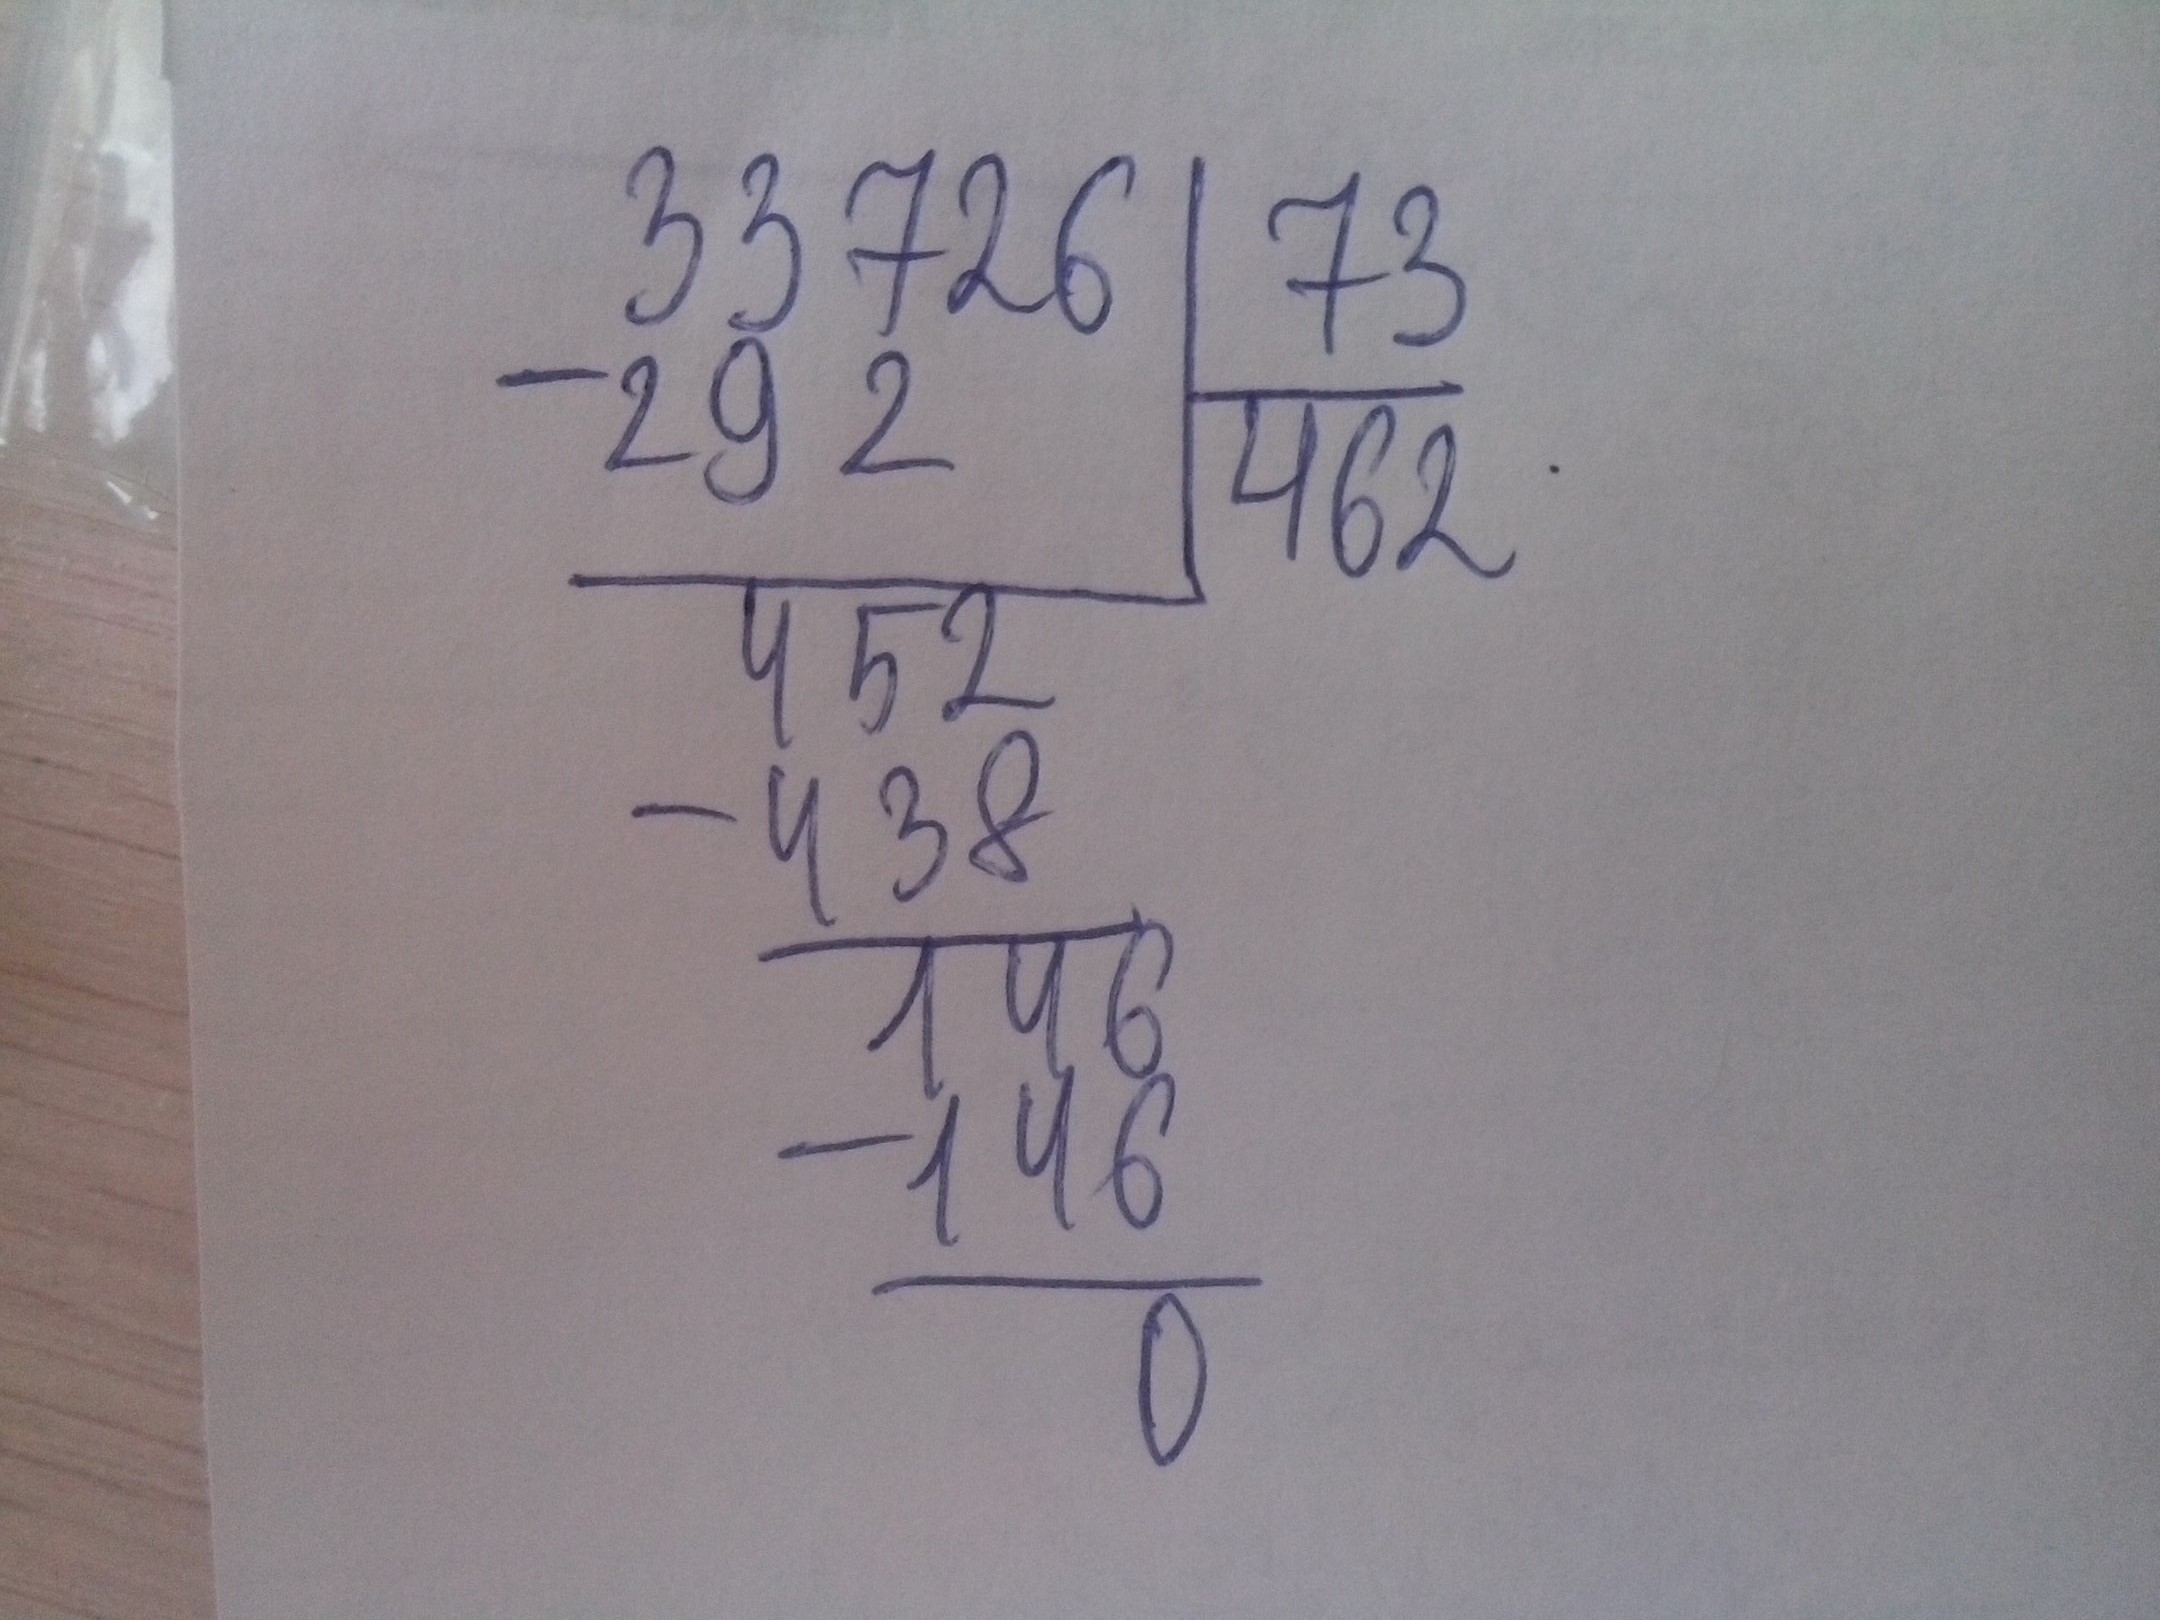 33726 73
-292 462
452
-438
146
-146
0